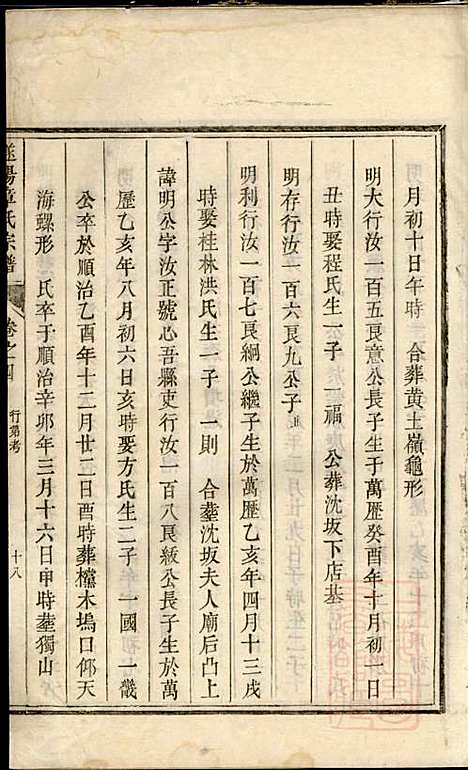 月初十日午時　合葬黃土嶺龜形
明大行汝一百五良意公長子生于萬歷癸酉年十月初一日
丑時娶程氏生一子　一福　公葬沈坂下店基
明存行汝一百六良九公子
明利行汝一百七良綱公繼子生於萬歷乙亥年四月十三戌
時娶桂林洪氏生一子　一則　合塟沈坂夫人廟后凸上
諱明公字汝正號心吾縣吏行汝一百八良紱公長子生於萬
歷乙亥年八月初六日亥時娶方氏生二子　一國　一畿
公卒於順治乙酉年十二月廿二日酉時葬櫃木塢口仰天
海螺形　氏卒于順治辛卯年三月十六日申時塟獨山
章氏宗譜　卷之四　行第考　十八